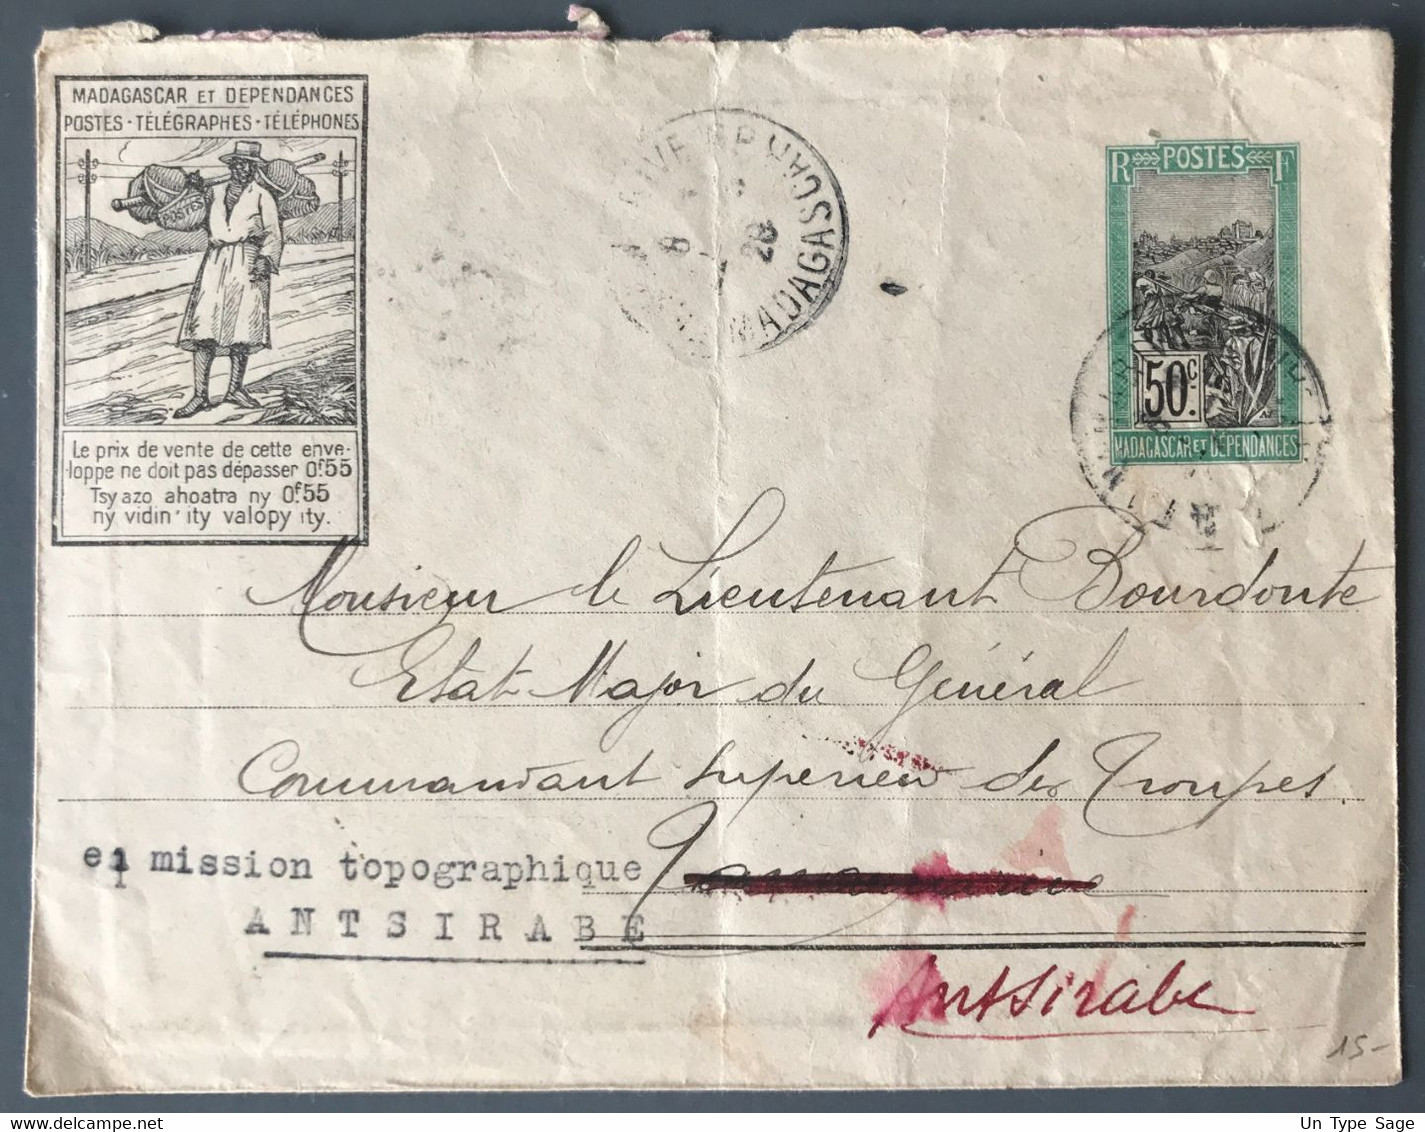 MADAGASCAR ET DEPENDANCES
POSTES - TÉLÉGRAPHES - TÉLÉPHONES
POSTES
Le prix de vente de cette enve-
loppe ne doit pas dépasser 0f55
Tsy azo ahoatra ny 0f.55
ny vidin' ity valopy ity.
MADAGASCAR
8
28
R POSTES F
50c.
MADAGASCAR ET DÉPENDANCES
Monsieur le Lieutenant Bourdonte
Etat-Major du Général
Commandant Superieur des Troupes
en mission topographique
ANTSIRABE
Antsirabe
15-
Un Type Sage